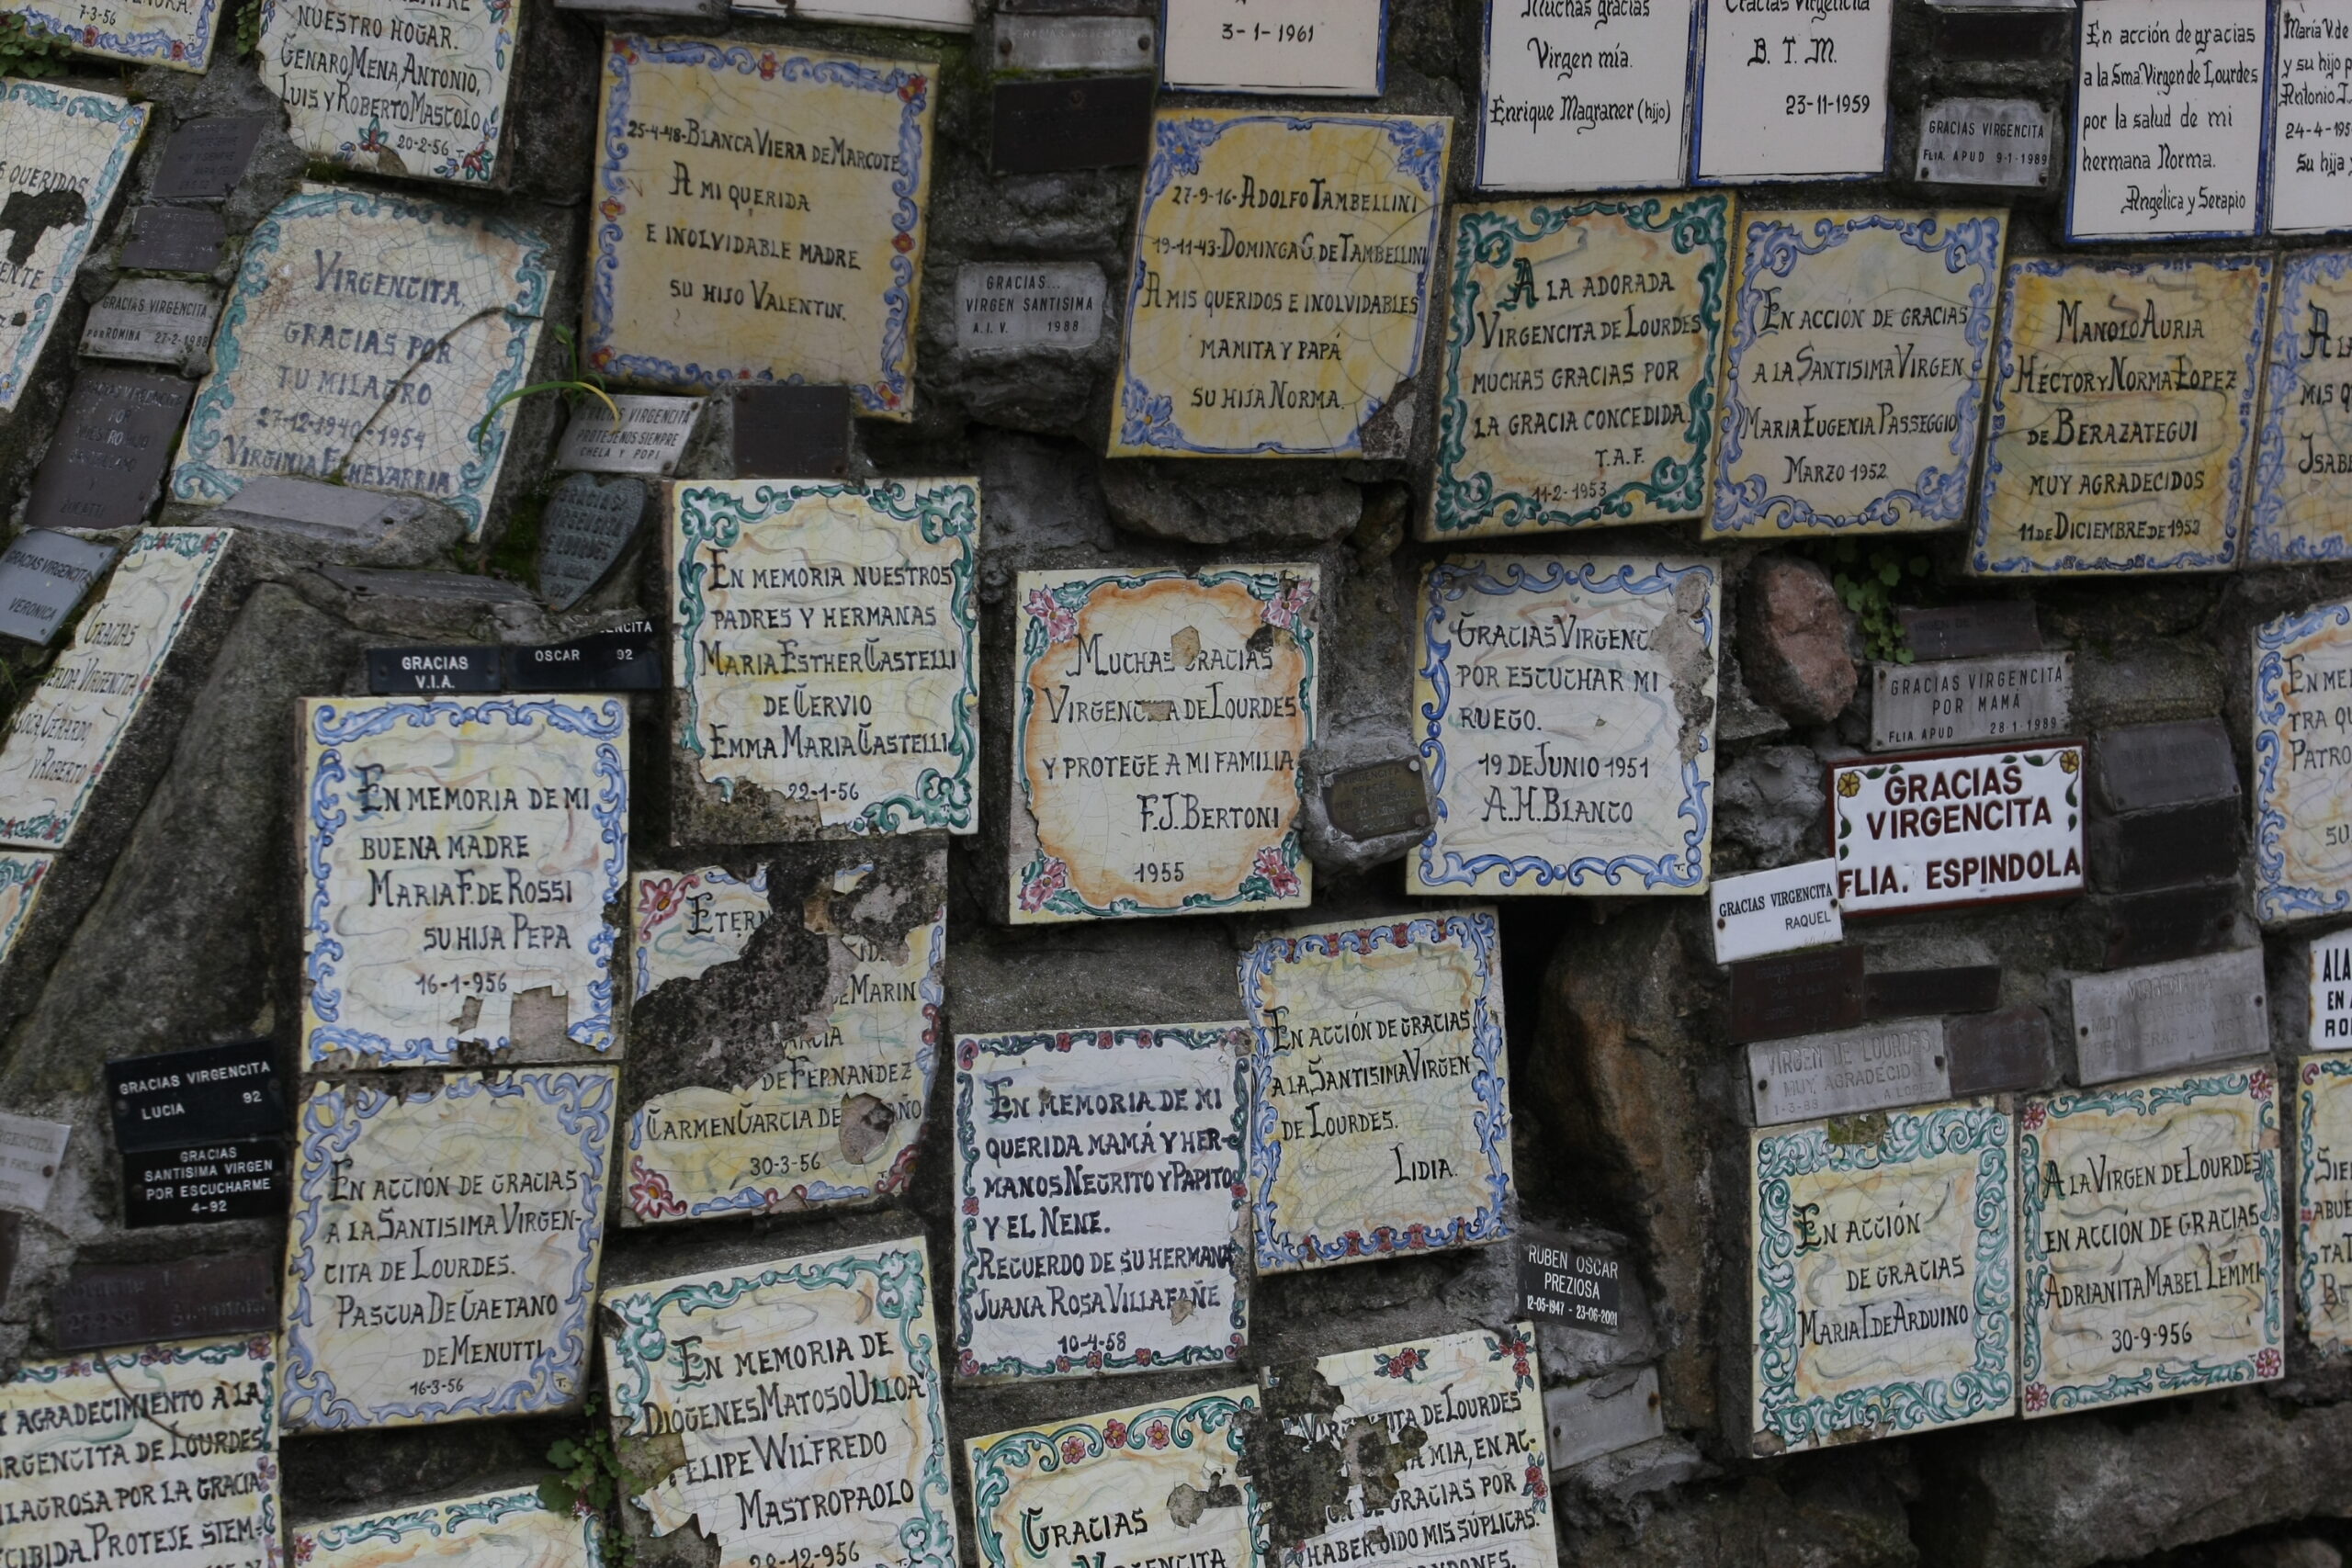 7-3-56
NUESTRO HOGAR.
GENARO, MENA, ANTONIO,
LUIS Y ROBERTO MASCOLO
20-2-56
25-4-48-BLANCA VIERA DE MARCOTE
A MI QUERIDA
E INOLVIDABLE MADRE
SU HIJO VALENTIN.
3-1-1961
Muchas gracias
Virgen mía.
Enrique Magraner (hijo)
Gracias Virgencita
B. T. M.
23-11-1959
En acción de gracias
a la Sma Virgen de Lourdes
por la salud de mi
hermana Norma.
Angélica y Serapio
María V. de
y su hijo
Antonio
24-4-195
Su hija
GRACIAS VIRGENCITA
FLIA. APUD 9-1-1989
27-9-16-ADOLFO TAMBELLINI
19-11-43-DOMINGA G. DE TAMBELLINI
A MIS QUERIDOS E INOLVIDABLES
MAMITA Y PAPÁ
SU HIJA NORMA.
QUERIDOS
GRACIAS VIRGENCITA
POR ROMINA 27-2-1988
VIRGENCITA,
GRACIAS POR
TU MILAGRO
27-12-1940-1954
VIRGINIA ECHEVARRIA
GRACIAS...
VIRGEN SANTISIMA
A.I.V. 1988
A LA ADORADA
VIRGENCITA DE LOURDES
MUCHAS GRACIAS POR
LA GRACIA CONCEDIDA.
T.A.F.
11-2-1953
EN ACCIÓN DE GRACIAS
A LA SANTISIMA VIRGEN
MARIA EUGENIA PASSEGGIO
MARZO 1952
MANOLO AURIA
HÉCTOR Y NORMA LOPEZ
DE BERAZATEGUI
MUY AGRADECIDOS
11 DE DICIEMBRE DE 1953
A LA
MIS
ISABE
GRACIAS VIRGENCITA
PROTEJENOS SIEMPRE
CHELA Y POPI
GRACIAS
VIRGENCITA
DE LOURDES
GRACIAS VIRGENCITA
VERONICA
GRACIAS
VIRGENCITA
GERARDO,
Y ROBERTO
GRACIAS
V.I.A.
OSCAR 92
EN MEMORIA NUESTROS
PADRES Y HERMANAS
MARIA ESTHER CASTELLI
DE CERVIO
EMMA MARIA CASTELLI
22-1-56
MUCHAS GRACIAS
VIRGENCITA DE LOURDES
Y PROTEGE A MI FAMILIA
F.J. BERTONI
1955
GRACIAS VIRGENC
POR ESCUCHAR MI
RUEGO.
19 DE JUNIO 1951
A.H. BLANCO
GRACIAS VIRGENCITA
POR MAMÁ
FLIA. APUD 28-1-1989
GRACIAS
VIRGENCITA
FLIA. ESPINDOLA
GRACIAS VIRGENCITA
RAQUEL
EN MEMORIA DE MI
BUENA MADRE
MARIA F. DE ROSSI
SU HIJA PEPA
16-1-956
ETERN
MARIN
DE FERNANDEZ
CARMEN GARCIA DE
30-3-56
EN ACCIÓN DE GRACIAS
A LA SANTISIMA VIRGEN
DE LOURDES.
LIDIA.
EN MEMORIA DE MI
QUERIDA MAMÁ Y HER-
MANOS NEGRITO Y PAPITO
Y EL NENE.
RECUERDO DE SU HERMANA
JUANA ROSA VILLAFAÑE
10-4-58
VIRGEN DE LOURDES
MUY AGRADECIDO
1-3-83 A LOPEZ
GRACIAS VIRGENCITA
LUCIA 92
GRACIAS
SANTISIMA VIRGEN
POR ESCUCHARME
4-92
EN ACCIÓN DE GRACIAS
A LA SANTISIMA VIRGEN-
CITA DE LOURDES.
PASCUA DE GAETANO
DE MENUTTI
16-3-56
EN ACCIÓN
DE GRACIAS
MARIA I. DE ARDUINO
A LA VIRGEN DE LOURDES
EN ACCIÓN DE GRACIAS
ADRIANITA MABEL LEMMI
30-9-956
RUBEN OSCAR
PREZIOSA
12-05-1947 - 23-06-2001
EN MEMORIA DE
DIÓGENES MATOSO ULLOA
FELIPE WILFREDO
MASTROPAOLO
28-12-956
Y AGRADECIMIENTO A LA
VIRGENCITA DE LOURDES
MILAGROSA POR LA GRACIA
RECIBIDA. PROTEJE SIEM-
GRACIAS
VIRGENCITA
VIRGENCITA DE LOURDES
MIA, EN AC-
GRACIAS POR
HABER OIDO MIS SÚPLICAS.